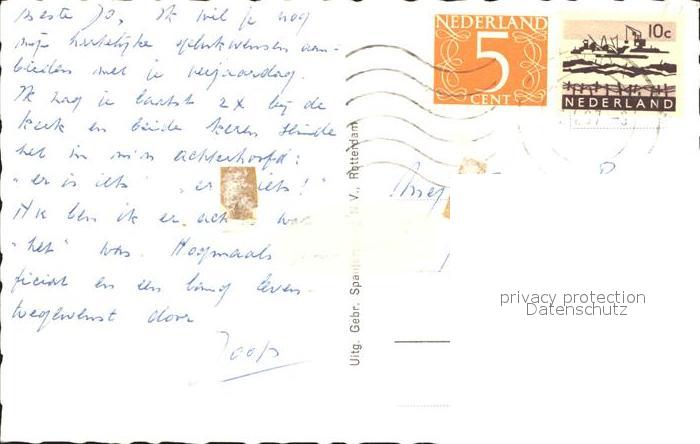 Beste Jo, Ik wil je nog
mijn hartelijke gelukwensen aan-
bieden met je verjaardag.
Ik zag je laatst 2x bij de
kerk en beide keren
het in m'n achterhoofd:
"er is iets" "er iets!"
Nu ben ik er
"het" was. Nogmaals
ficiat en een lang leven
toegewenst door
Joop
Uitg. Gebr. N.V., Rotterdam
NEDERLAND
5
CENT
10c
NEDERLAND
Mej
privacy protection
Datenschutz